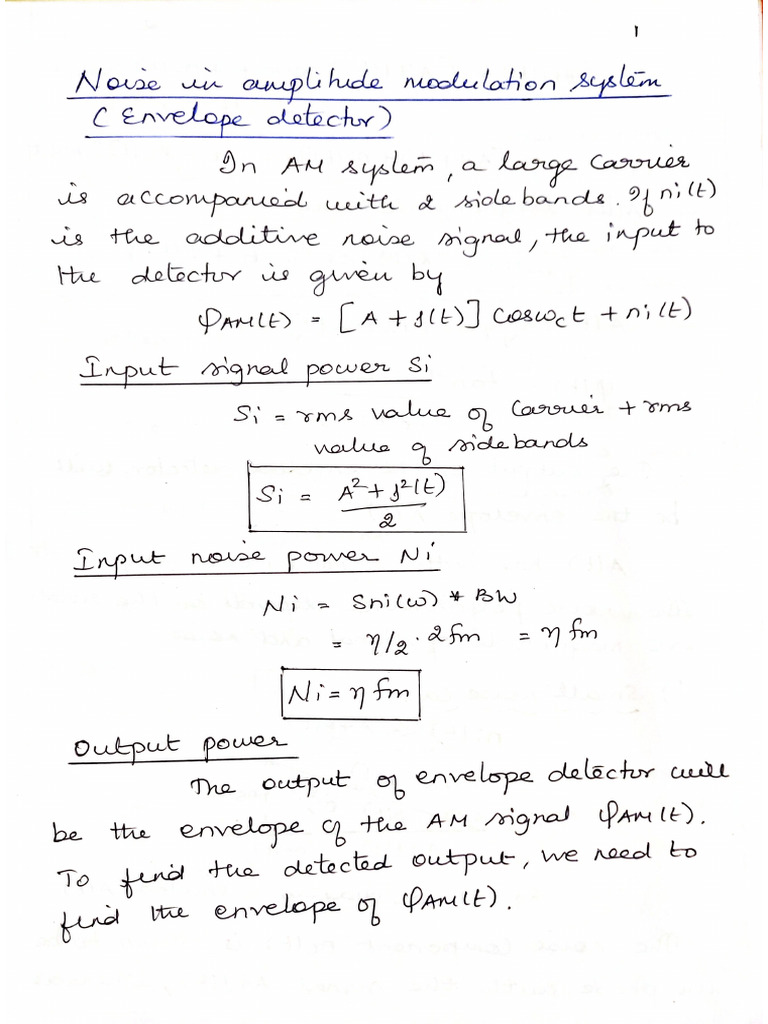 1
Noise in amplitude modulation system
(Envelope detector)
In AM system, a large carrier
is accompanied with 2 sidebands. If ni(t)
is the additive noise signal, the input to
the detector is given by
φAM(t) = [A + f(t)] cosωct + ni(t)
Input signal power Si
Si = rms value of carrier + rms
value of sidebands
Si = A² + f²(t) / 2
Input noise power Ni
Ni = Sni(ω) * BW
= η/2 . 2fm = η fm
Ni = η fm
Output power
The output of envelope detector will
be the envelope of the AM signal φAM(t).
To find the detected output, we need to
find the envelope of φAM(t).